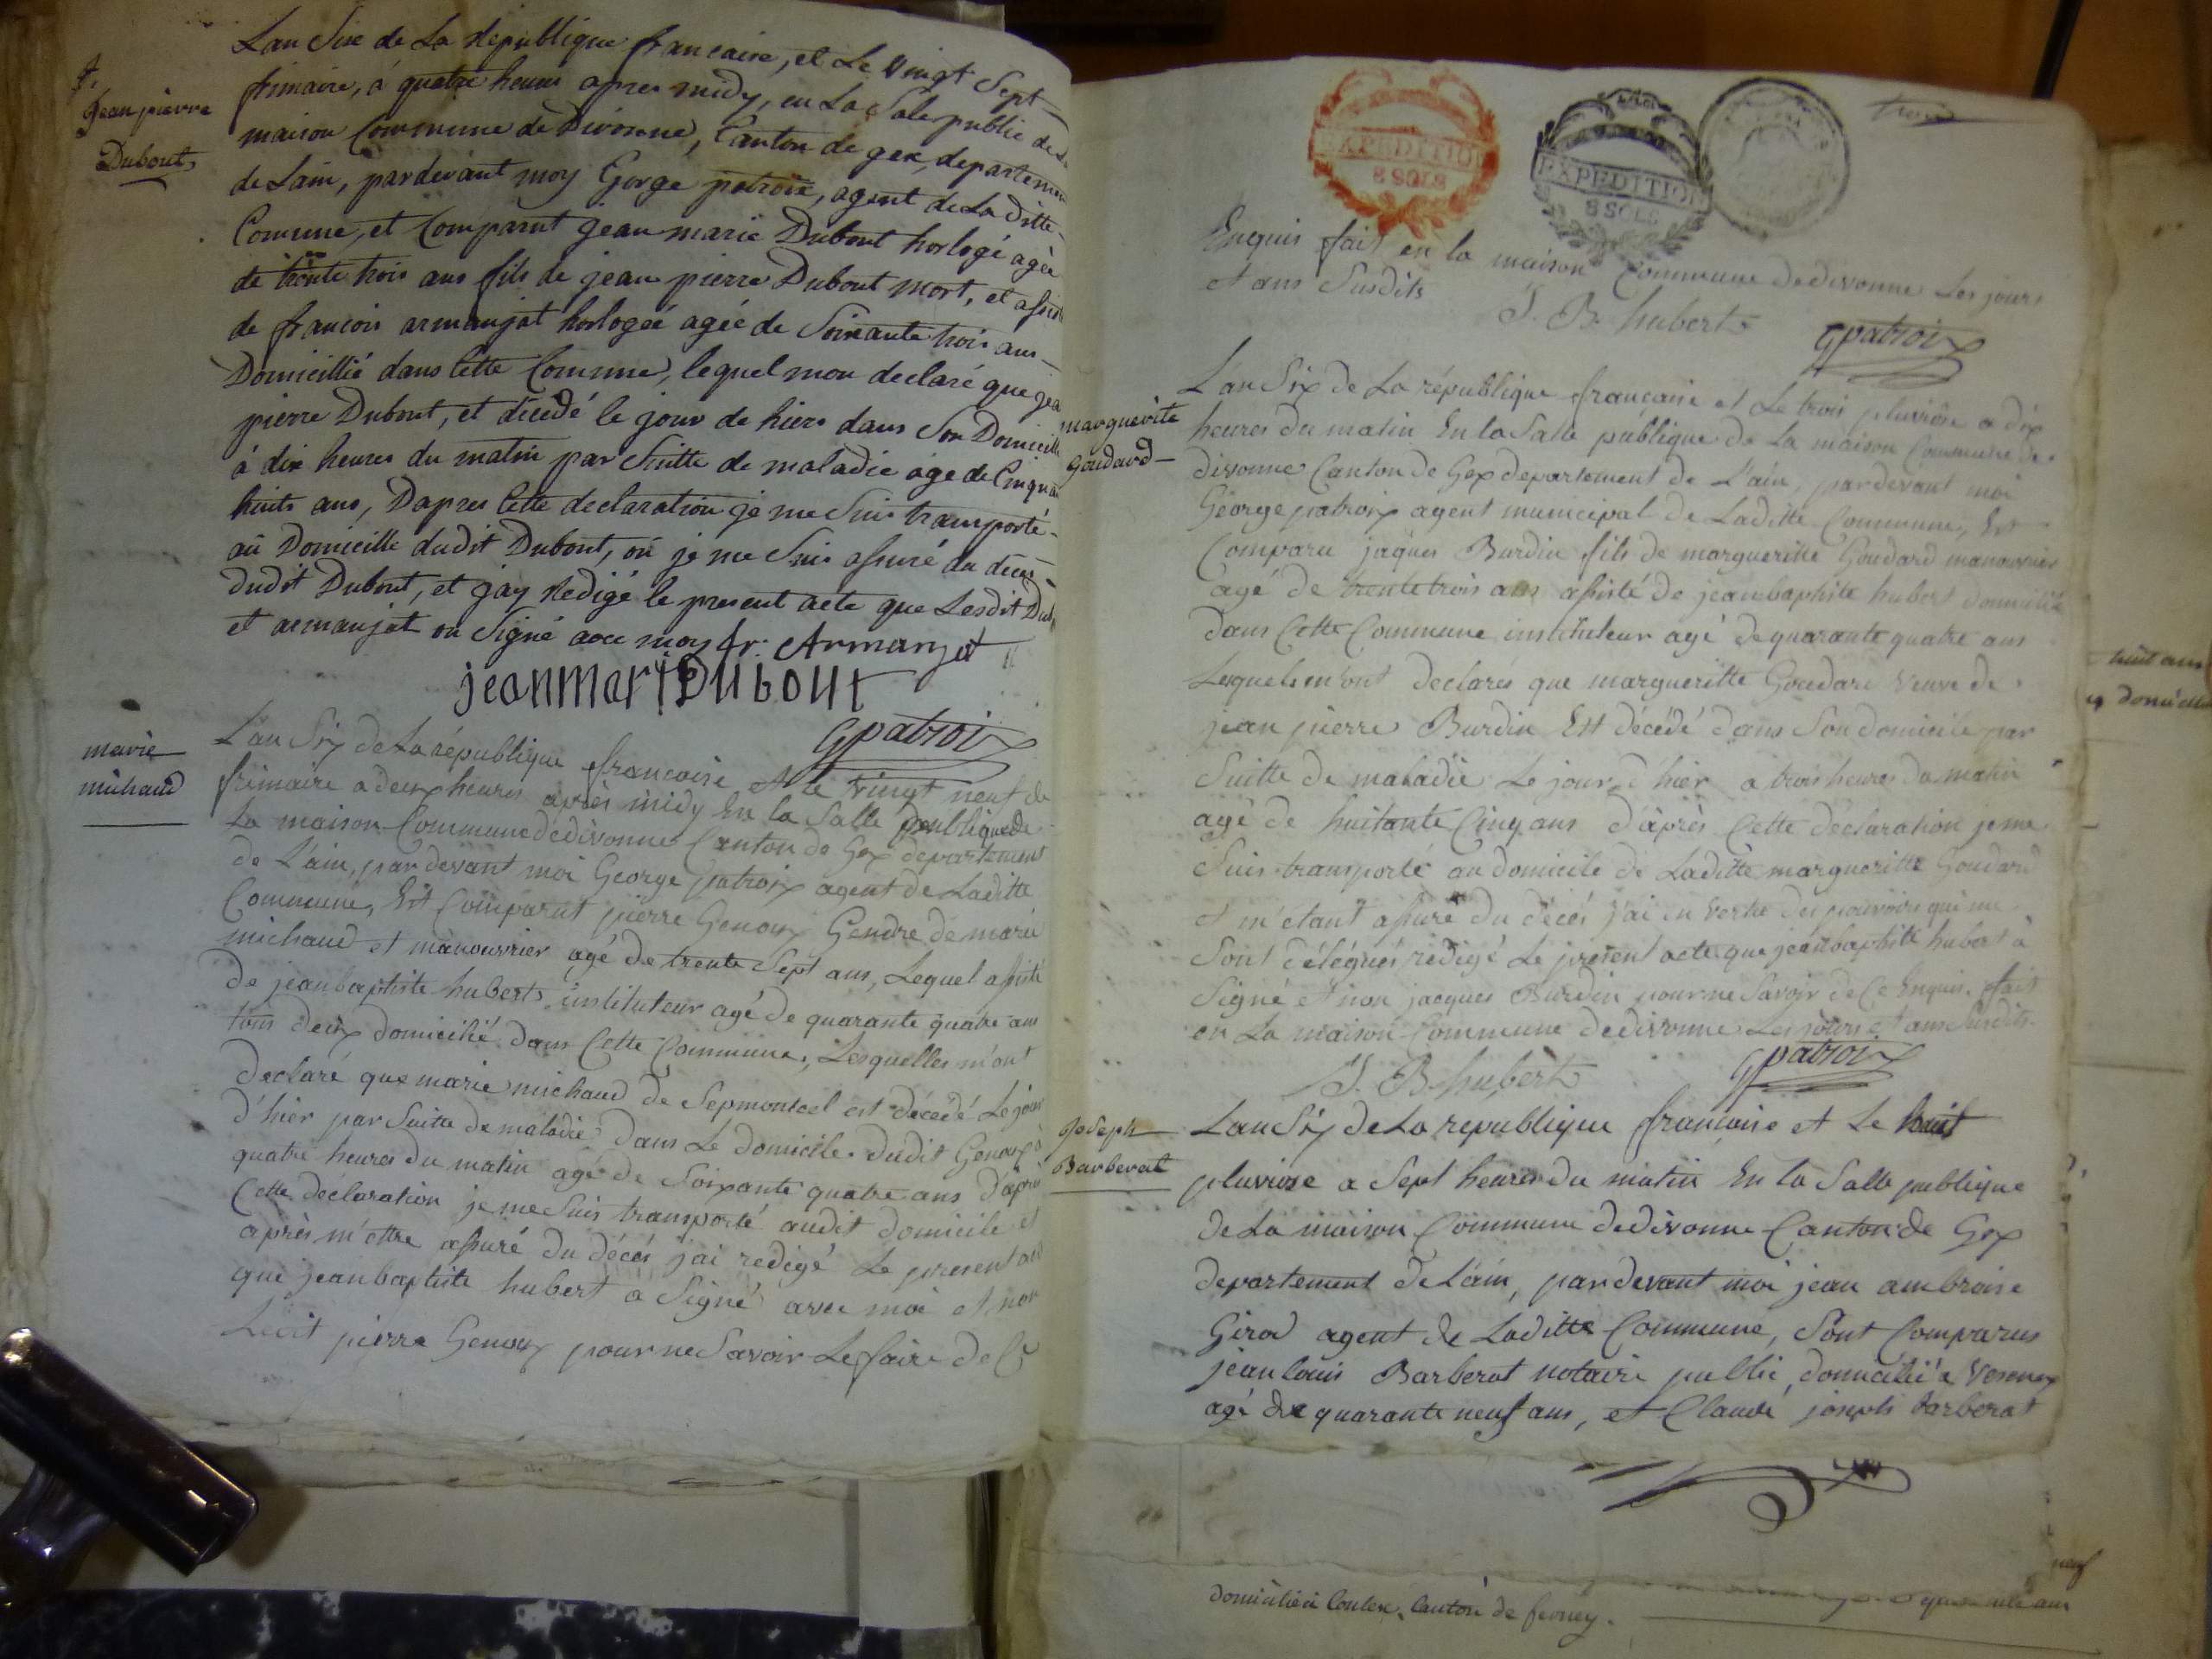 Lan Sixe de La republique francaise, et Le Vingt Sept
frimaire, à quatre heures apres midy, en La Sale public de
maison Commune de Divonne, Canton de gex, departement
de Lain, pardevant moy Gorge patroix, agent de La ditte
Comune, et Comparut jean marie Dubout horlogé agée
de trente trois ans fils de jean pierre Dubout mort, et assisté
de francois armanjat horlogeé agée de Soixante trois ans
Domicillié dans Cette Comune, lequel mon declaré que jea
pierre Dubout, et décedé le jour de hiere dans Son Domicille
à dix heures du matin par Suitte de maladie age de Cinqua
huits ans, Dapres Cette declaration je me Suis transporté
au Domicille dudit Dubout, ou je me Suis assuré du deces
dudit Dubout, et jay Redigé le present acte que Lesdit Dub
et armanjat on Signé avec moy fr: Armanjat
jeanmariDubout
Gpatroix
jean pierre
Dubout
marie
michaud
L'an Six de La république francoise et le vingt neuf de
frimaire a deux heures après midy En la Salle publique de
La maison Commune de divonne Canton de Gex departement
de L'ain, pardevant moi George patroix agent de Laditte
Commune, Est Comparut pierre Genoux Gendre de marie
michaud et manouvrier agé de trente Sept ans, Lequel assisté
de jeanbaptiste hubert instituteur agé de quarante quatre ans
tous deux domicilié dans Cette Commune, Lesquelles m'ont
declaré que marie michaud de Sepmontcel est décedé Le jour
d'hier par Suitte de maladie dans Le domicile dudit Genoux à
quatre heures du matin agé de Soixante quatre ans D'après
Cette declaration je me Suis transporté audit domicile et
après m'ettre assuré du décés j'ai redigé Le present act
que jeanbaptiste hubert a Signé avec moi et non
Ledit pierre Genoux pour ne Savoir Le faire de Ce
EXPEDITION
8 SOLS
EXPEDITION
8 SOLS
trois
Enquis fait en la maison Commune de divonne Les jours
et ans Susdits
J. B. hubert
Gpatroix
marguerite
Goudard
L'an Six de La république française et Le trois pluviôse a dix
heures du matin En la Salle publique de La maison Commune de
divonne Canton de Gex departement de L'ain, pardevant moi
George patroix agent municipal de Laditte Commune, Est
Comparu jaques Burdin fils de margueritte Goudard manouvrier
agé de trente trois ans assisté de jeanbaptiste hubert domicilié
dans Cette Commune instituteur agé de quarante quatre ans
Lesquels m'ont declarés que margueritte Goudard veuve de
jean pierre Burdin Est décédé dans Son domicile par
Suitte de maladie Le jour d'hier a trois heures du matin
agé de huitante Cinq ans d'après Cette déclaration je me
Suis transporté au domicile de Laditte margueritte Goudard
et m'étant assuré du décés j'ai en vertu des pouvoirs qui me
Sont délégués redigé Le present acte que jeanbaptiste hubert à
Signé et non jacques Burdin pour ne Savoir de Ce Enquis. fait
en La maison Commune de divonne Les jours et ans Susdits
J. B. hubert
Gpatroix
joseph
Barberat
L'an Six de La republique françoise et Le huit
pluviose a Sept heures du matin En la Salle publique
de La maison Commune de divonne Canton de Gex
departement de L'ain, pardevant moi jean ambroise
Girod agent de Laditte Commune, Sont Comparus
jean louis Barberat notaire public, domicilié a Vesenex
agé de quarante neuf ans, et Claude joseph Barberat
huit ans
domicilié
neuf
domicilié à Coulex, Canton de ferney.
ans